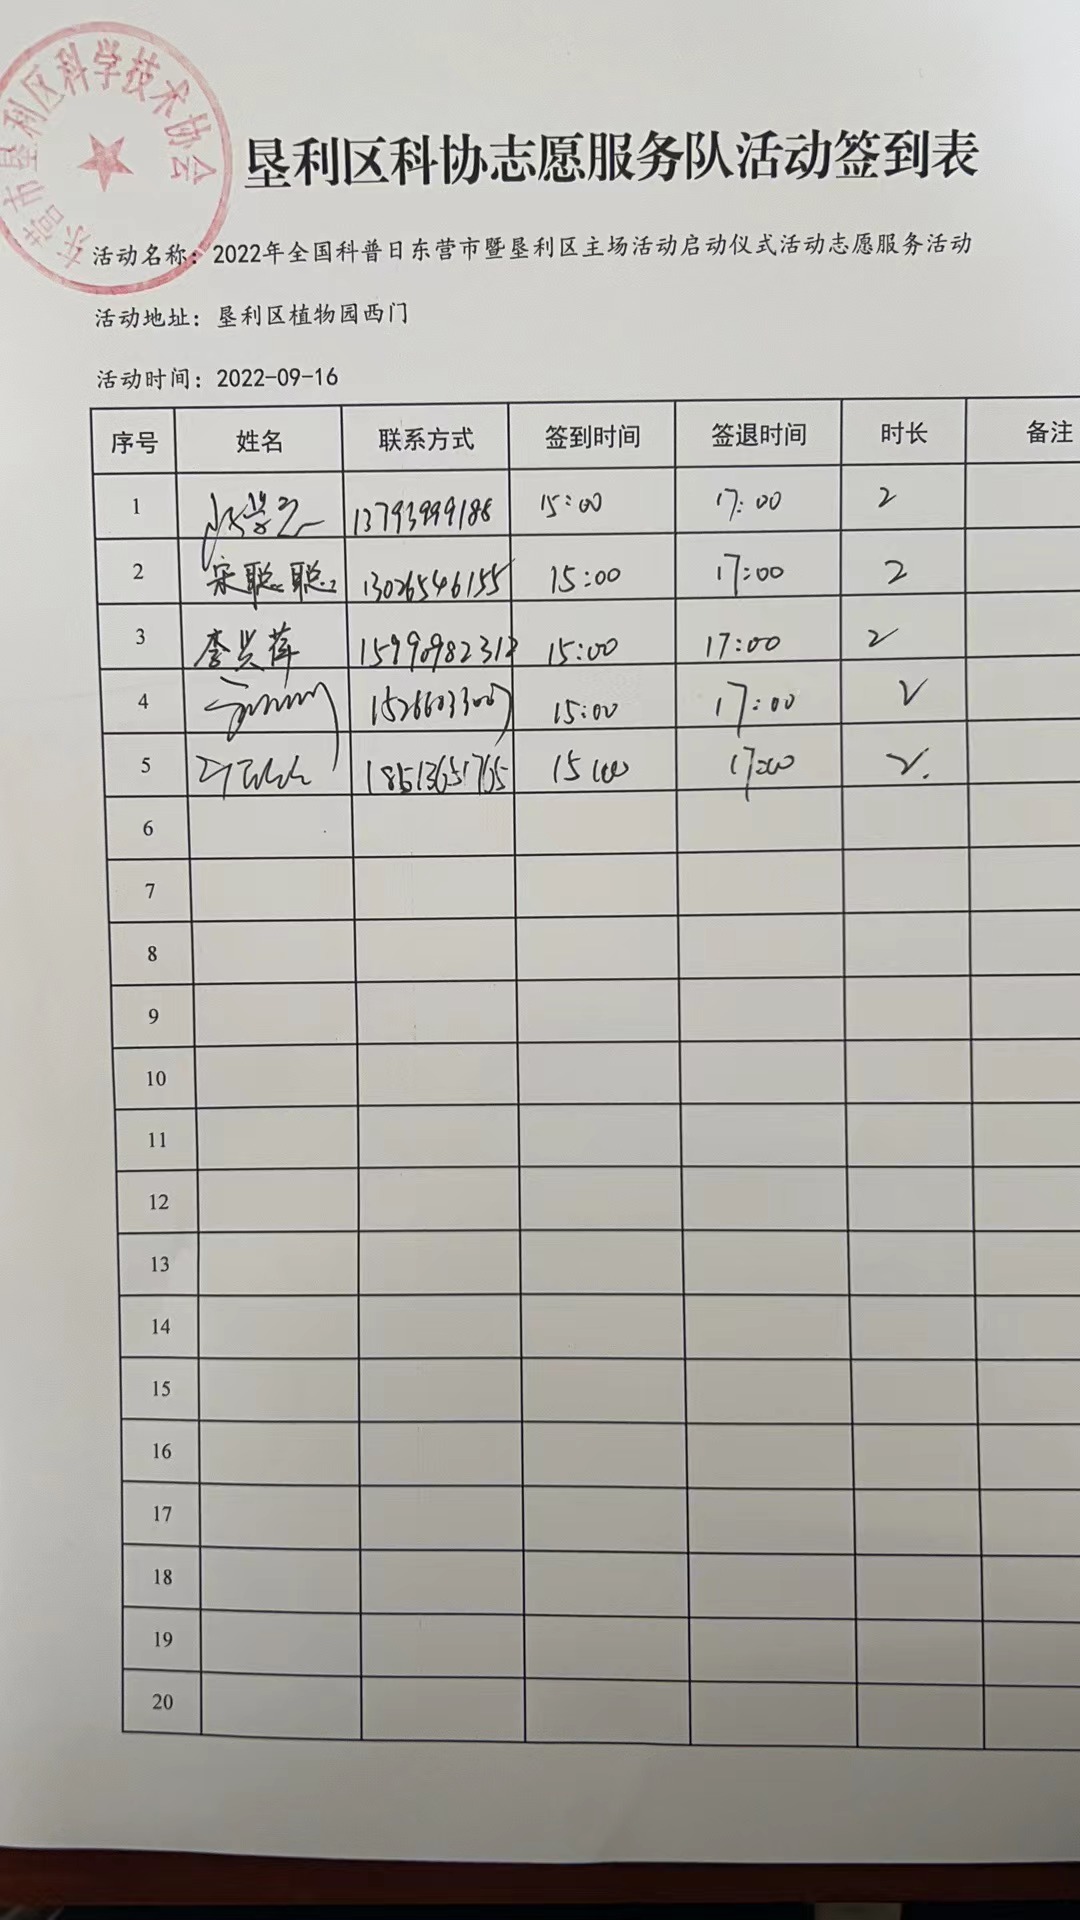 东营市垦利区科学技术协会
垦利区科协志愿服务队活动签到表
活动名称：2022年全国科普日东营市暨垦利区主场活动启动仪式活动志愿服务活动
活动地址：垦利区植物园西门
活动时间：2022-09-16
序号 姓名 联系方式 签到时间 签退时间 时长 备注
1 13793999188 15:00 17:00 2
2 宋聪聪 13026546155 15:00 17:00 2
3 15:00 17:00 2
4 15:00 17:00 2
5 15:00 17:00 2
6
7
8
9
10
11
12
13
14
15
16
17
18
19
20